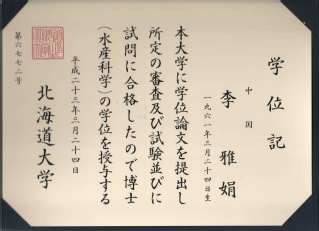 学位記
中国
李雅娟
一九六一年三月二十四日生
本大学に学位論文を提出し
所定の審査及び試験並びに
試問に合格したので博士
(水産科学)の学位を授与する
平成二十三年三月二十四日
北海道大学
第六七七二号